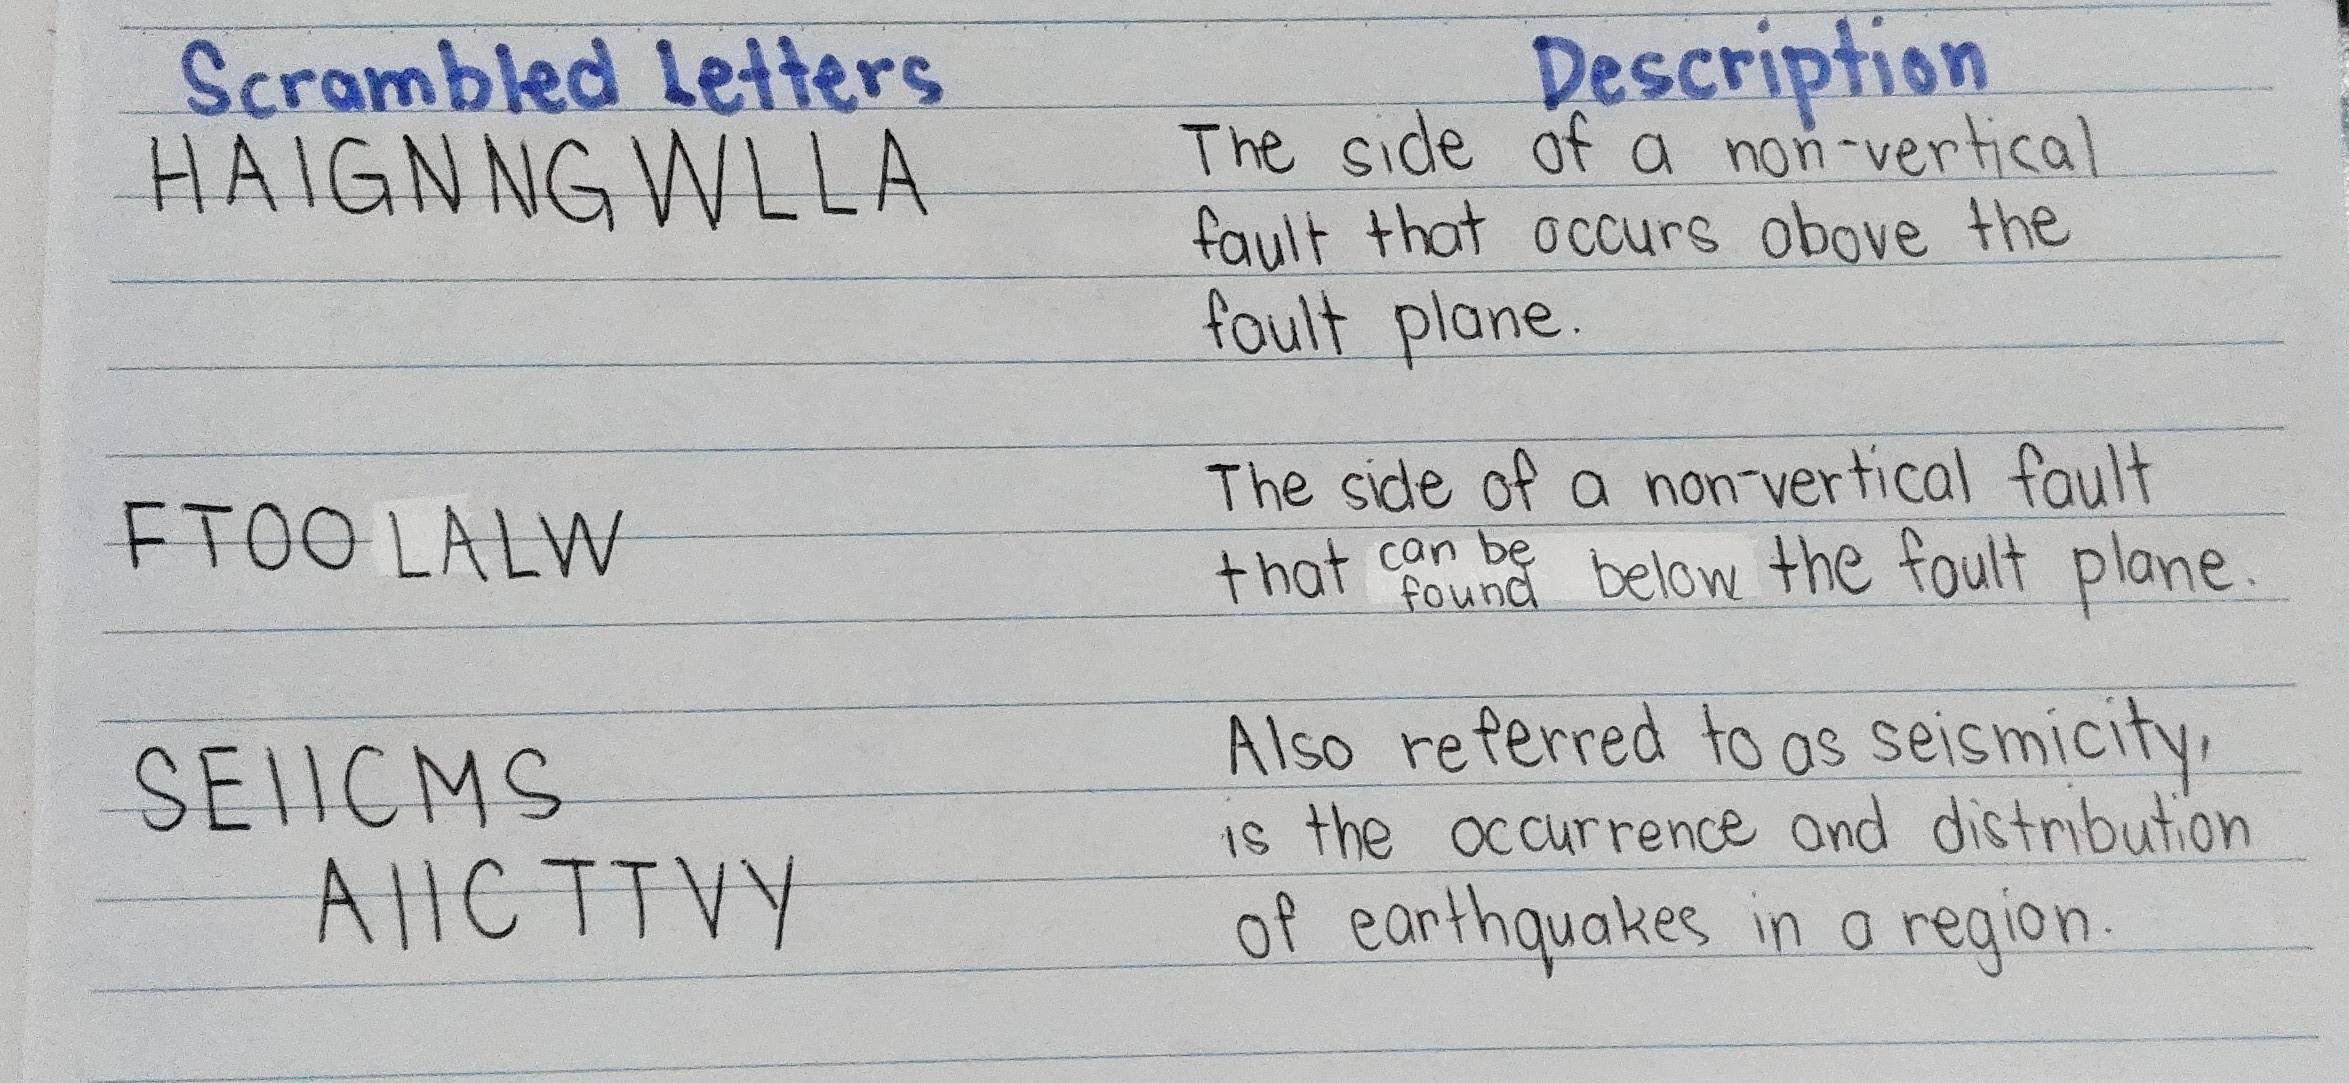 Scrambled Letters
Description
HAIGNNG WLLA
The side of a non-vertical
fault that occurs above the
fault plane.
FTOO LALW
The side of a non-vertical fault
that can be found below the fault plane.
SEIICMS
AIICTTVY
Also referred to as seismicity,
is the occurrence and distribution
of earthquakes in a region.